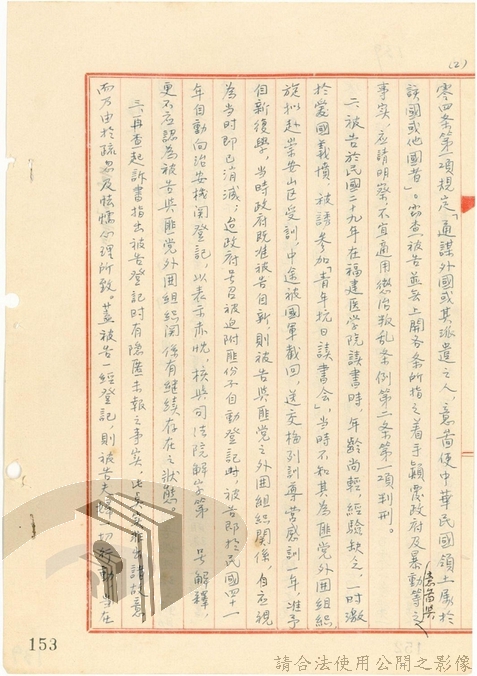 (2)
零四条第一項規定「通謀外國或其派遣之人，意啚使中華民國領土属於
該國或他國者」。出查被告並無上開各条所指之着手顛覆政府及暴動等之意啚與
事实，应請明察，不宜適用懲治叛乱条例第二条第一項判刑。
二、被告於民國二十九年在福建医学院讀書時，年齡尚輕，經驗欠乏，一时激
於愛國義憤，被誘參加「青年抗日讀書会」，当時不知其為匪党外囲組織
旋拟赴崇安山区受訓，中途被國軍截回，送交梅列訓導营感訓一年，准予
自新復学，当時政府既准被告自新，則被告與匪党之外囲組織関係，自应視
為当时即已消滅；迨政府号召被迫附匪份子自動登記時，被告即於民國四十一
年自動向治安機関登記，以表示赤忱，核與司法院解字第　　号解釋，
更不应認為被告與匪党外囲組織関係有継續存在之狀態。
三、再查起訴書指出被告登記时有隱匿未報之事实，此点实非出諸故意
而乃由於疏忽及怯懦心理所致。蓋被告一經登記，則被告夫婦一切行動，当在
153
請合法使用公開之影像